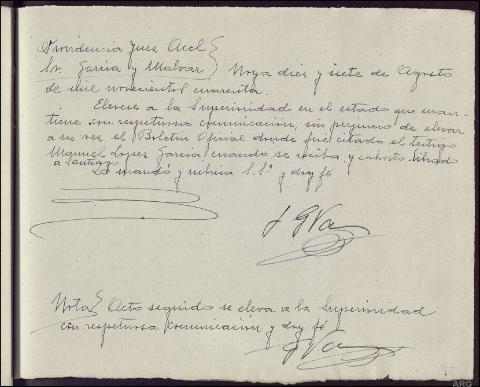 Providencia Juez Accl
Sr. García y Malvar } Noya diez y siete de Agosto
de mil novecientos cuarenta.
Elevese a la Superioridad en el estado que man-
tiene con respetuosa comunicación, sin perjuicio de elevar
a su vez el Boletin Oficial donde fué citado el testigo
Manuel Lopez García cuando se reciba y exhorto librado
a Santiago
Lo mandó y rubrica S. Sª y doy fé
Nota} Acto seguido se eleva a la Superioridad
con respetuosa comunicación y doy fé
ARG